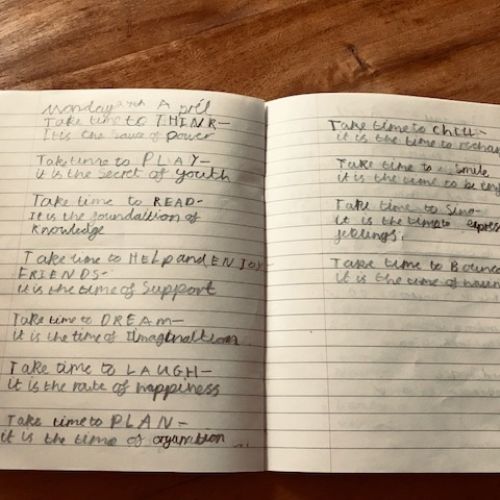 Monday April
Take time to THINK-
It is the of power
Take time to PLAY-
it is the secret of youth
Take time to READ-
It is the foundaltion of
Knowledge
Take time to HELP and ENJOY
FRIENDS-
it is the time of Support
Take time to DREAM-
it is the time of
Take time to LAUGH-
it is the of happiness
Take time to PLAN-
it is the time of
Take time to CHILL-
it is the time to
Take time to Smile
it is the time to be
Take time to Sing-
it is the time to
Take time to
it is the time of